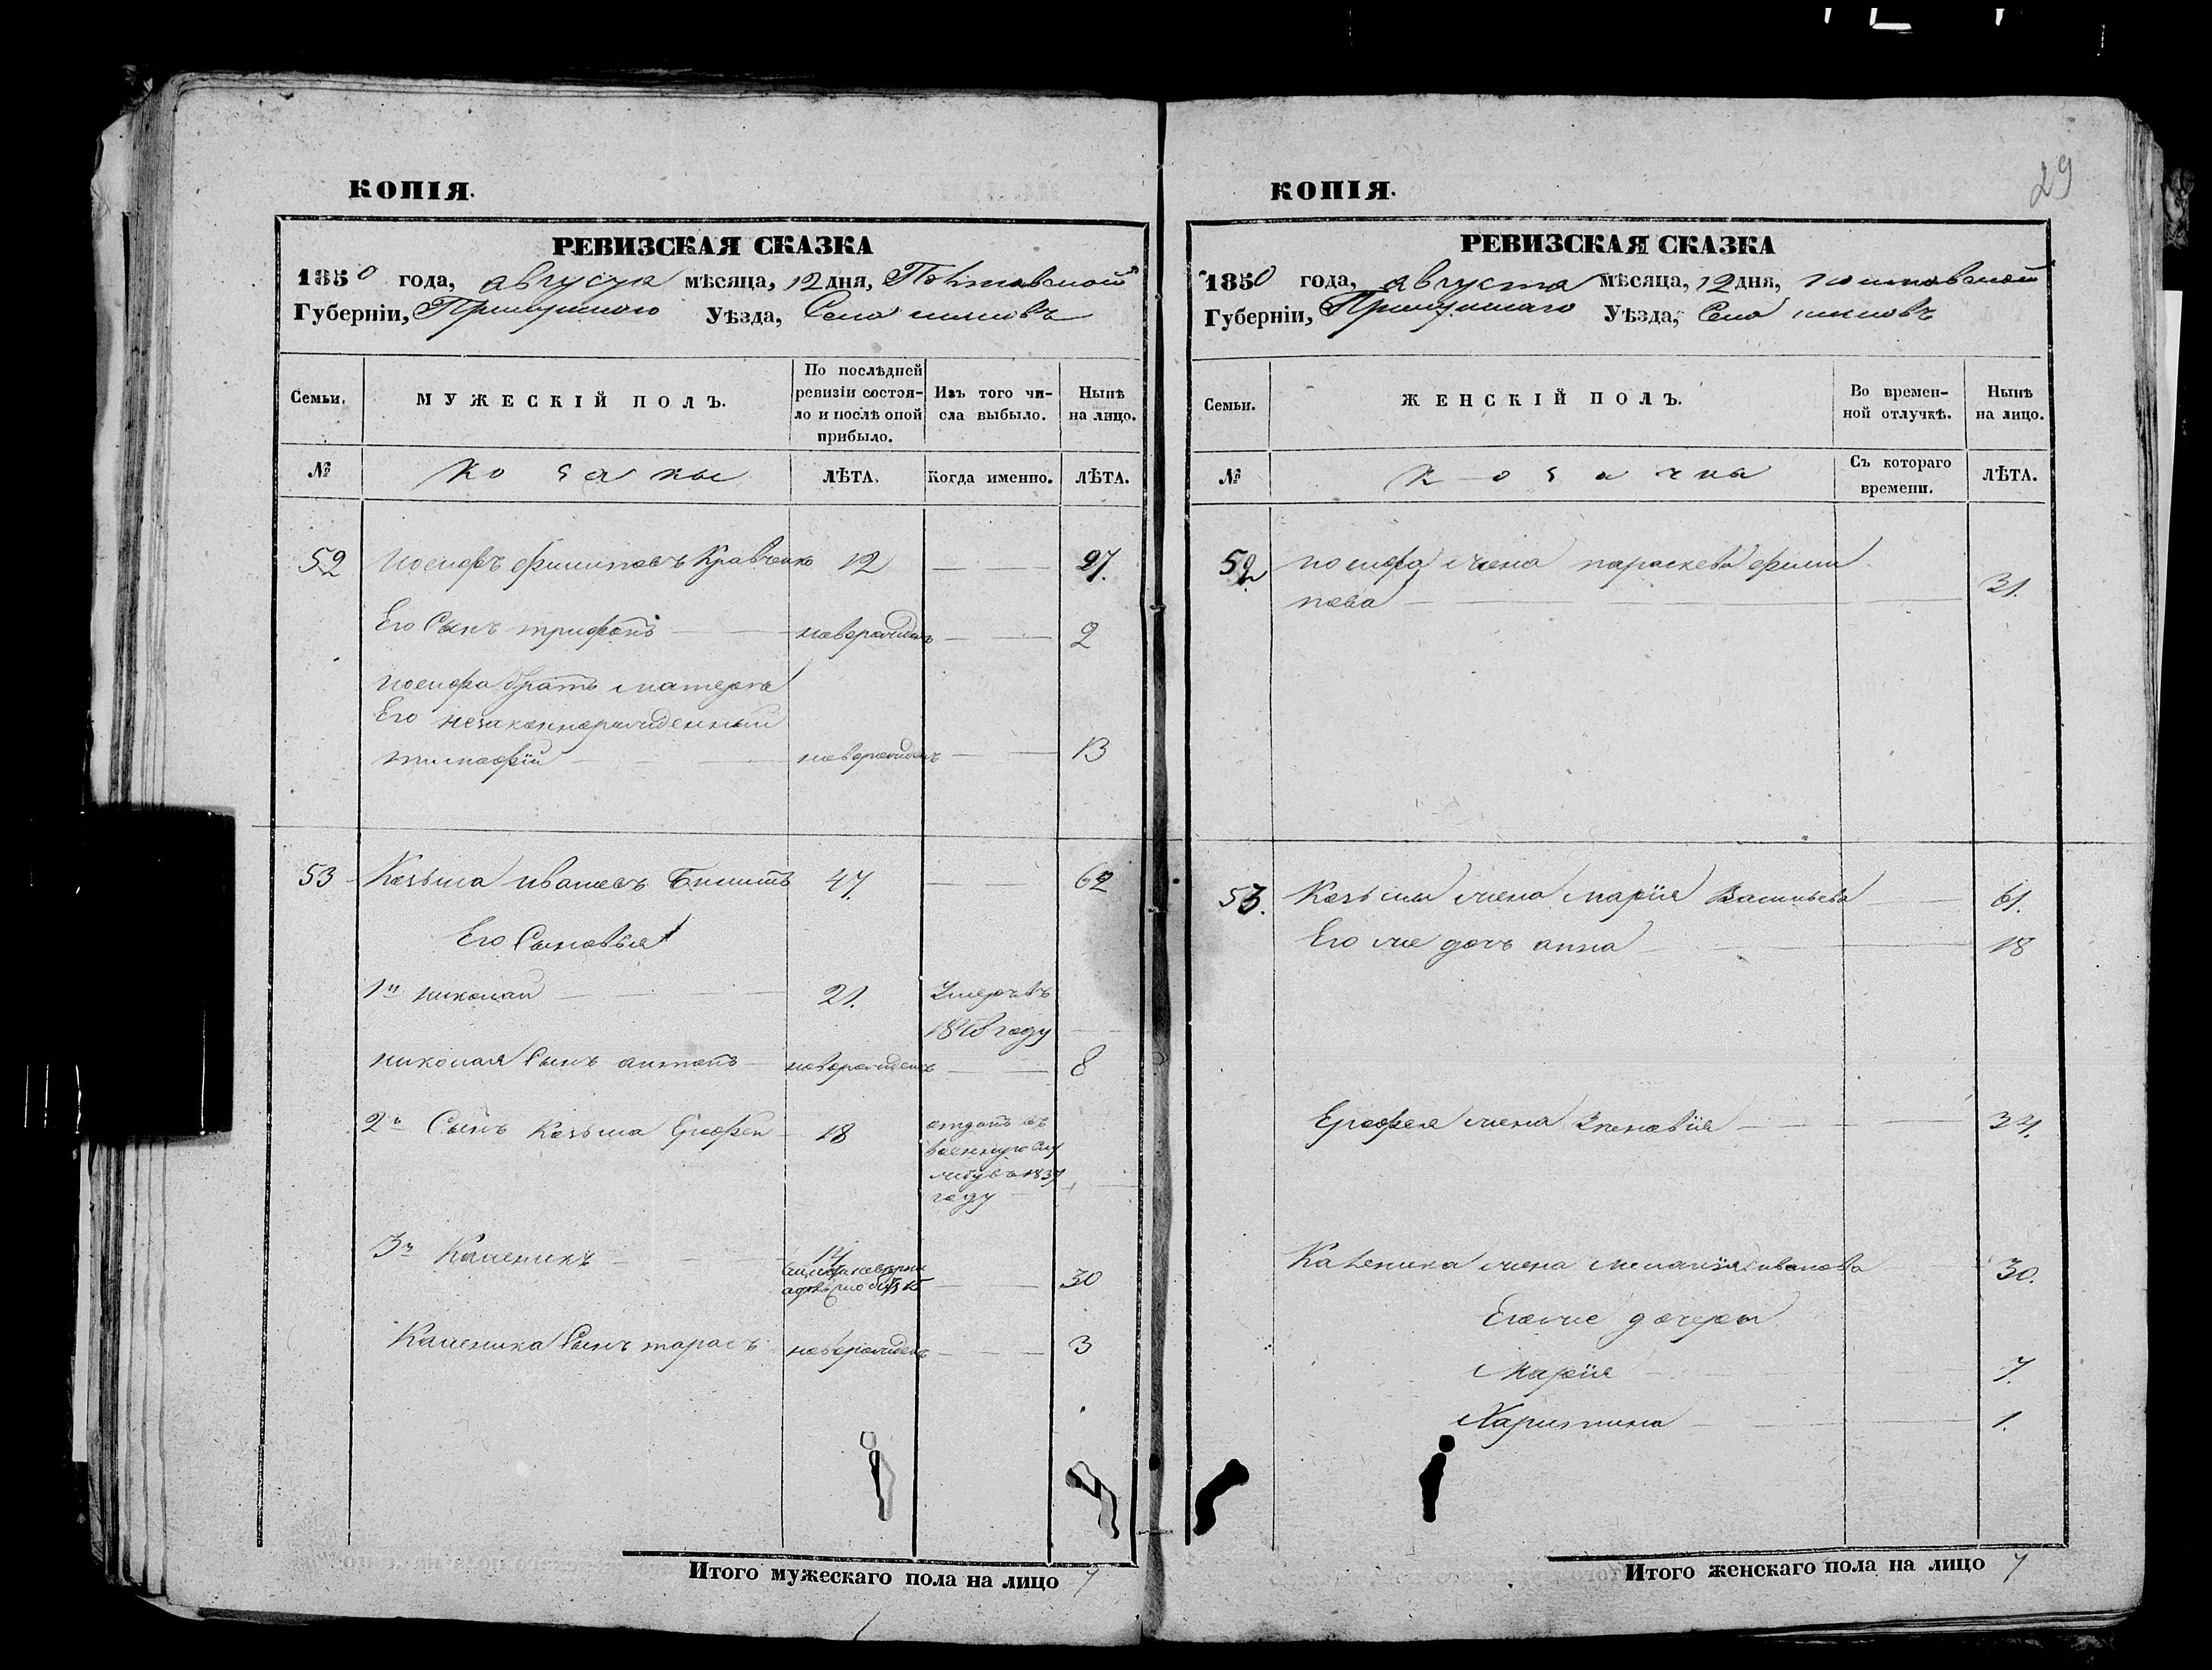 29
КОПІЯ.
РЕВИЗСКАЯ СКАЗКА
1850 года, августа мѣсяца, 12 дня, Полтавской
Губерніи, Прилуцкаго Уѣзда, Села
Семьи.
МУЖЕСКІЙ ПОЛЪ.
По послѣдней
ревизіи состоя-
ло и послѣ оной
прибыло.
Изъ того чи-
сла выбыло.
Нынѣ
на лицо.
№
козаки
ЛѢТА.
Когда именно.
ЛѢТА.
52 иосифъ филиповъ Кравченко 12 27.
Его Сынъ трифонъ новорожденъ 2
иосифа братъ матерью
Его незаконнорожденный
тимофій новорожденъ 13
53 Козьма ивановъ 47. 62
Его Сыновья
1й николай 21. Умеръ въ
году
николая Сынъ антонъ новорожденъ 8
2й Сынъ Козьма Ерофей 18 отданъ въ
военную слу
жбу въ 1837
году
3й Каленикъ 14 30
Каленика Сынъ тарасъ новорожденъ 3
Итого мужескаго пола на лицо 7
КОПІЯ.
РЕВИЗСКАЯ СКАЗКА
1850 года, августа мѣсяца, 12 дня, полтавской
Губерніи, Прилуцкаго Уѣзда, Села
Семьи.
ЖЕНСКІЙ ПОЛЪ.
Во времен-
ной отлучкѣ.
Нынѣ
на лицо.
№
козачки
Съ котораго
времени.
ЛѢТА.
52 иосифа жена параскева фили
пова 31.
53. Козьмы жена марія Васильева 61.
Его же дочъ анна 18
Ерофея жена Зиновія 34.
Каленика жена меланія иванова 30.
Егоже дочери
Марія 7.
Харитина 1.
Итого женскаго пола на лицо 7